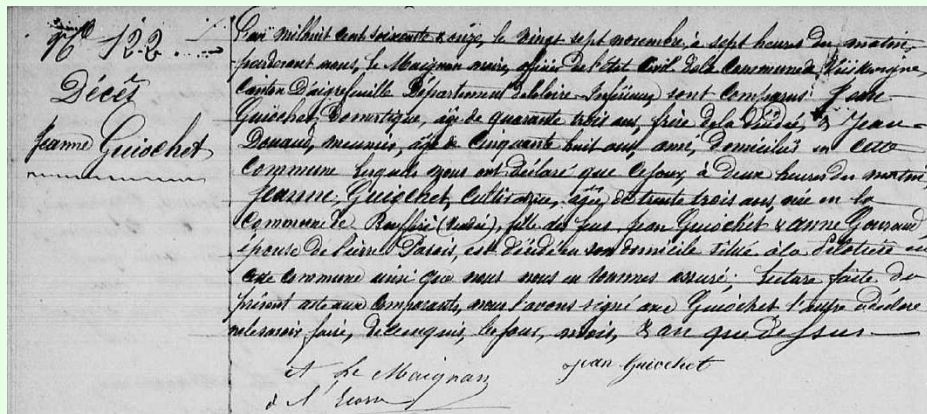 No 122
Décès
Jeanne Guiochet
L'an mil huit cent soixante & onze, le vingt sept novembre, à sept heures du matin,
pardevant nous, Le Maignan maire, officier de l'état Civil de la Commune de
Canton D'aigrefeuille Département de loire-Inférieure, sont Comparus: Jean
Guiochet, Domestique, âgé de quarante trois ans, frère de la Décédée, & Jean
Douaud, meunier, âgé de Cinquante huit ans, ami, domiciliés en cette
commune lesquels nous ont déclaré que ce jour, à deux heures du matin,
Jeanne, Guiochet, Cultivatrice, âgée de trente trois ans née en la
Commune de (Vendée), fille des feus, Jean Guiochet & anne
épouse de Pierre est décédée en son domicile situé à la en
cette Commune ainsi que nous nous en sommes assuré; Lecture faite du
présent acte aux Comparants, nous l'avons signé avec Guiochet l'autre déclare
ne le savoir faire, de ce enquis, les jour, mois, & an que Dessus
Le Maignan
Jean Guiochet